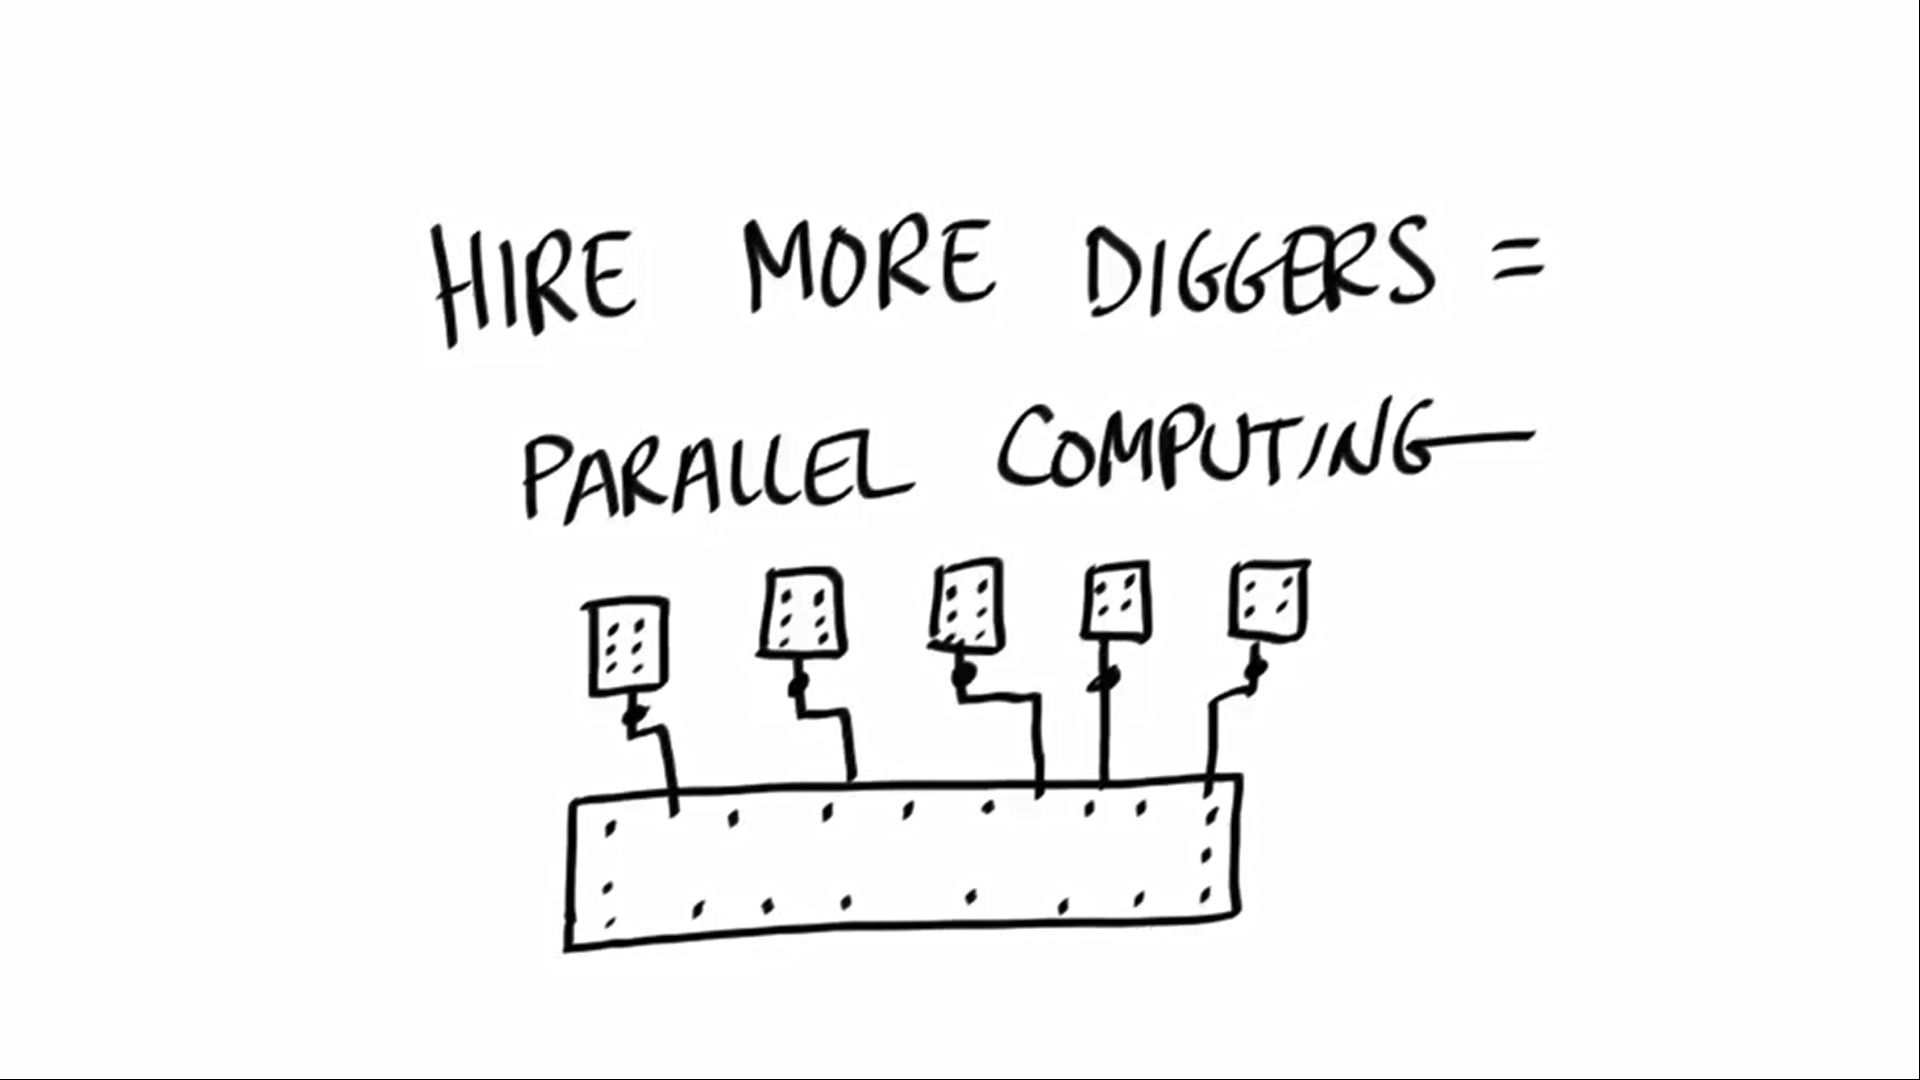 HIRE MORE DIGGERS =
PARALLEL COMPUTING